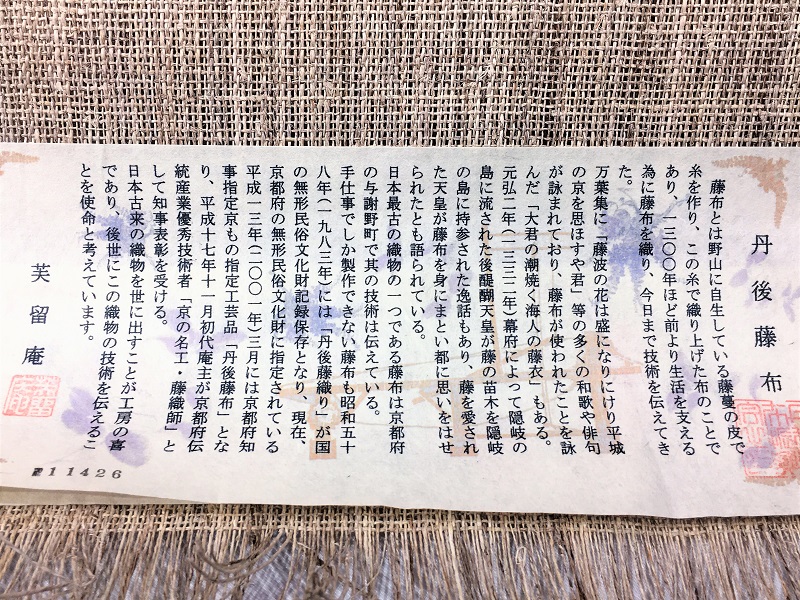 丹後藤布
藤布とは野山に自生している藤蔓の皮で
糸を作り、この糸で織り上げた布のことで
あり、一三〇〇年ほど前より生活を支える
為に藤布を織り、今日まで技術を伝えてき
た。
万葉集に「藤波の花は盛になりにけり平城
の京を思ほすや君」等の多くの和歌や俳句
が詠まれており、藤布が使われたことを詠
んだ「大君の潮焼く海人の藤衣」もある。
元弘二年(一三三二年)幕府によって隠岐の
島に流された後醍醐天皇が藤の苗木を隠岐
の島に持参された逸話もあり、藤を愛され
た天皇が藤布を身にまとい都に思いをはせ
られたとも語られている。
日本最古の織物の一つである藤布は京都府
の与謝野町で其の技術は伝えている。
手仕事でしか製作できない藤布も昭和五十
八年(一九八三年)には「丹後藤織り」が国
の無形民俗文化財記録保存となり、現在、
京都府の無形民俗文化財に指定されている
平成一三年(二〇〇一年)三月には京都府知
事指定京もの指定工芸品「丹後藤布」とな
り、平成十七年十一月初代庵主が京都府伝
統産業優秀技術者「京の名工・藤織師」と
して知事表彰を受ける。
日本古来の織物を世に出すことが工房の喜
であり、後世にこの織物の技術を伝えるこ
とを使命と考えています。
芙留庵
211426